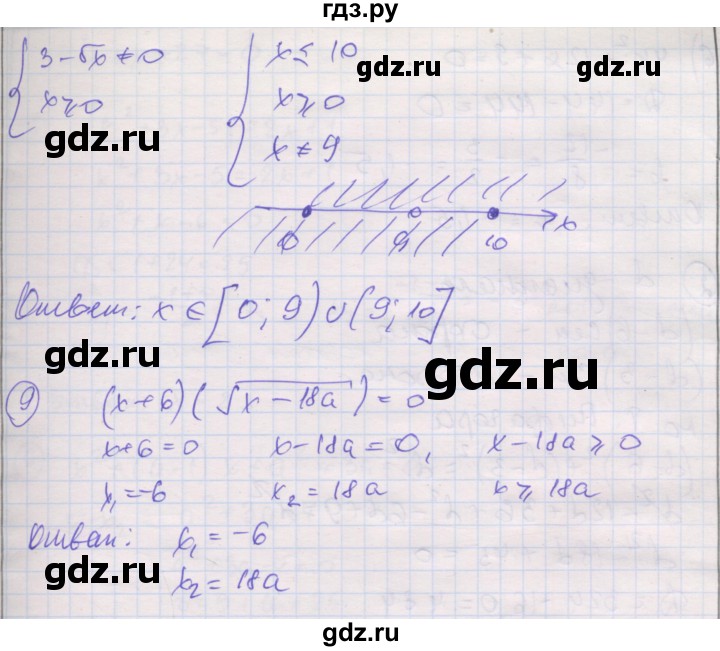 гдз.ру
3 - √x ≠ 0
x ≥ 0
x ≤ 10
x ≥ 0
x ≠ 9
gdz.ru
gdz.ru
gdz.ru
0 9 10 x
Ответ: x ∈ [0; 9) ∪ (9; 10]
gdz.ru
gdz.ru
9 (x + 6)(√x - 18a) = 0
x + 6 = 0 x - 18a = 0, x - 18a ≥ 0
x₁ = -6 x₂ = 18a x ≥ 18a
Ответ: x₁ = -6
x₂ = 18a
gdz.ru
gdz.ru
gdz.ru